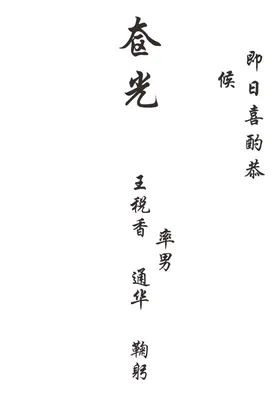 即日喜酌恭
候
奁光
王税香
率男
通华
鞠躬